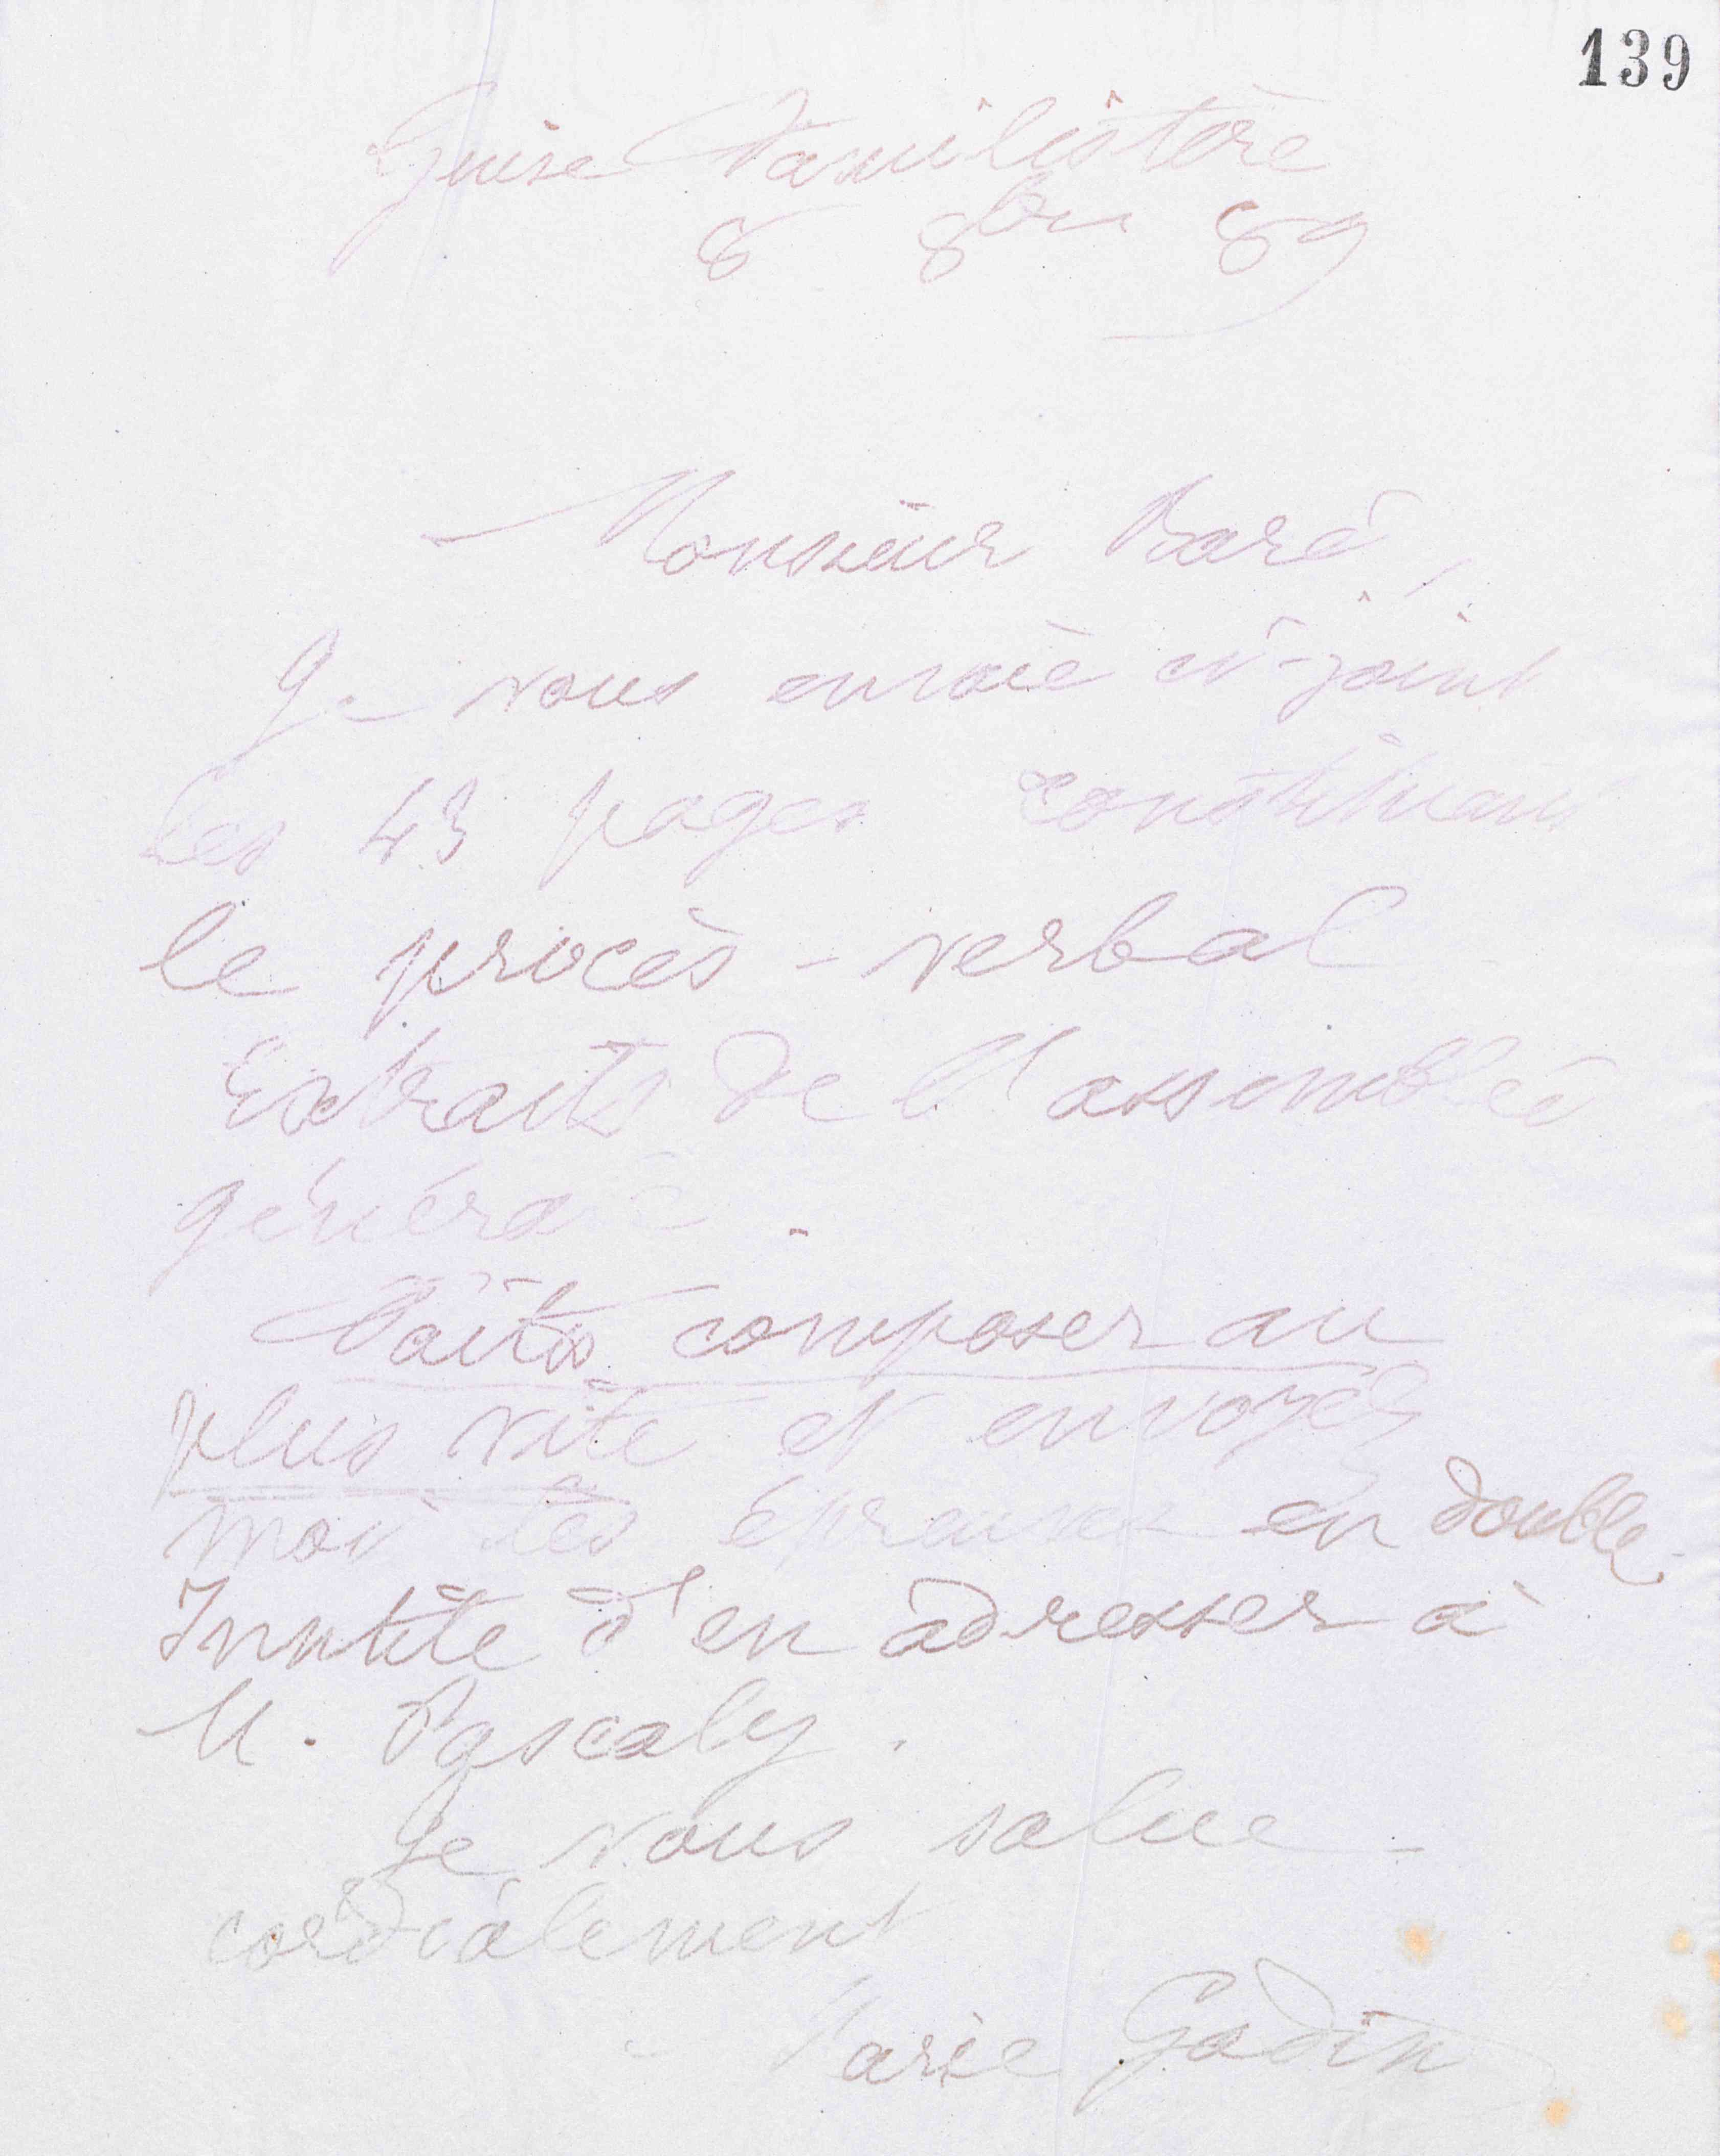 139
Guise Familistère
8 8bre 89
Monsieur Baré,
Je vous envoie ci-joint
les 43 pages constituant
le procès-verbal
Extraits de l'assemblée
générale.
Faites composer au
plus vite et envoyez
moi les épreuves en double.
Inutile d'en adresser à
M. Pascaly.
Je vous salue
cordialement
Marie Godin